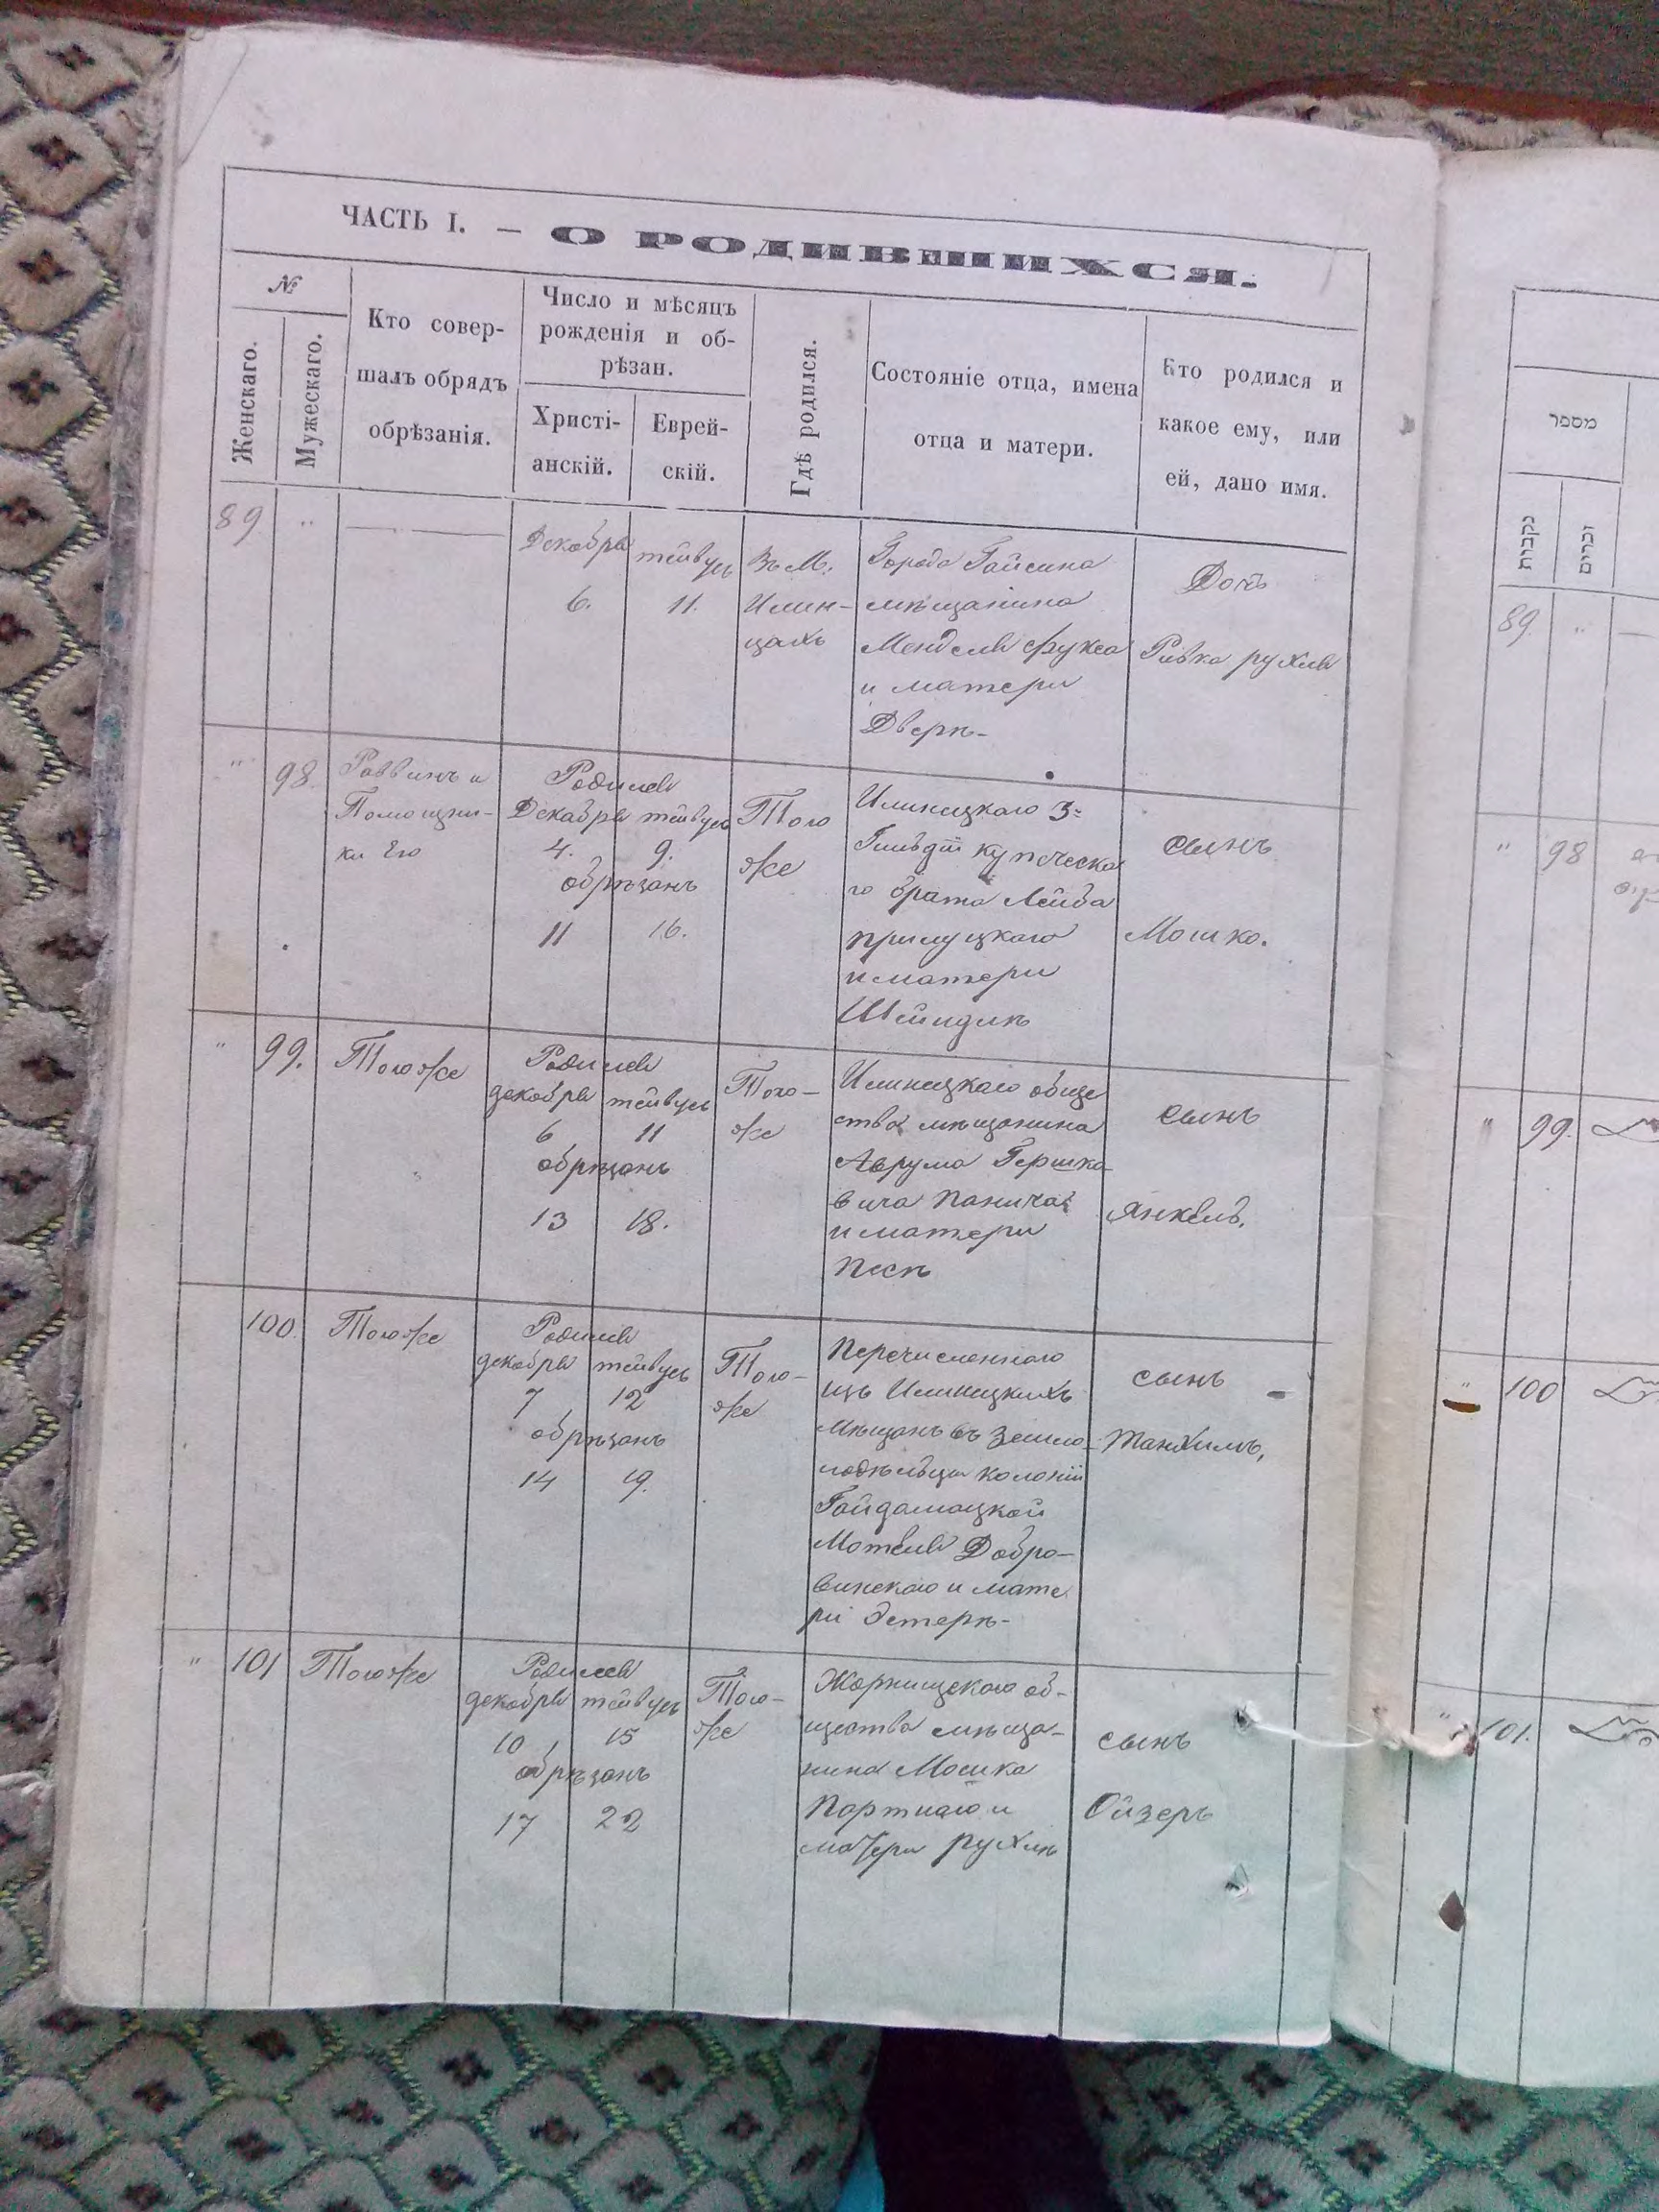 ЧАСТЬ I. — О РОДИВШИХСЯ.
№
Женскаго.
Мужескаго.
Кто совер-
шалъ обрядъ
обрѣзанія.
Число и мѣсяцъ
рожденія и об-
рѣзан.
Христі-
анскій.
Еврей-
скій.
Гдѣ родился.
Состояніе отца, имена
отца и матери.
Кто родился и
какое ему, или
ей, дано имя.
89 "
Декабря тейвусъ
6. 11.
Въ М.
Илин-
цахъ
Города Гайсина
мѣщанина
Менделя Фукса
и матери
Дверѣ-
Дочь
Ривка рухля
" 98
Раввинъ и
Помощни-
ки Его
Родился
Декабря тейвусъ
4. 9.
обрѣзанъ
11 16.
Того
же
Илинецкаго 3=
Гильдіи купческа
го брата Лейба
прилуцкаго
и матери
Шейндлѣ
сынъ
Мошко.
" 99.
Тогоже
Родился
декабря тейвусъ
6 11
обрѣзанъ
13 18.
Того-
же
Илинецкаго обще
ства мѣщанина
Аврума Гершко
вича Панича
и матери
Песѣ
сынъ
Янкель.
100.
Тогоже
Родился
декабря тейвусъ
7 12
обрѣзанъ
14 19.
Того-
же
Перечисленнаго
изъ Илинецкихъ
Мѣщанъ въ Земле-
лодѣльцы колоніи
Гайдамацкой
Мотеля Добро-
винскаго и мате
ри Эстерѣ-
сынъ
Танхимъ,
" 101
Тогоже
Родился
декабря тейвусъ
10 15
обрѣзанъ
17 22
Того-
же
Жорнищскаго об-
щества мѣща-
нина Мошка
Портнаго и
матери рухлѣ
сынъ
Ойзеръ
מספר
נקבות
זכרים
89 "
" 98
" 99.
" 100
" 101.